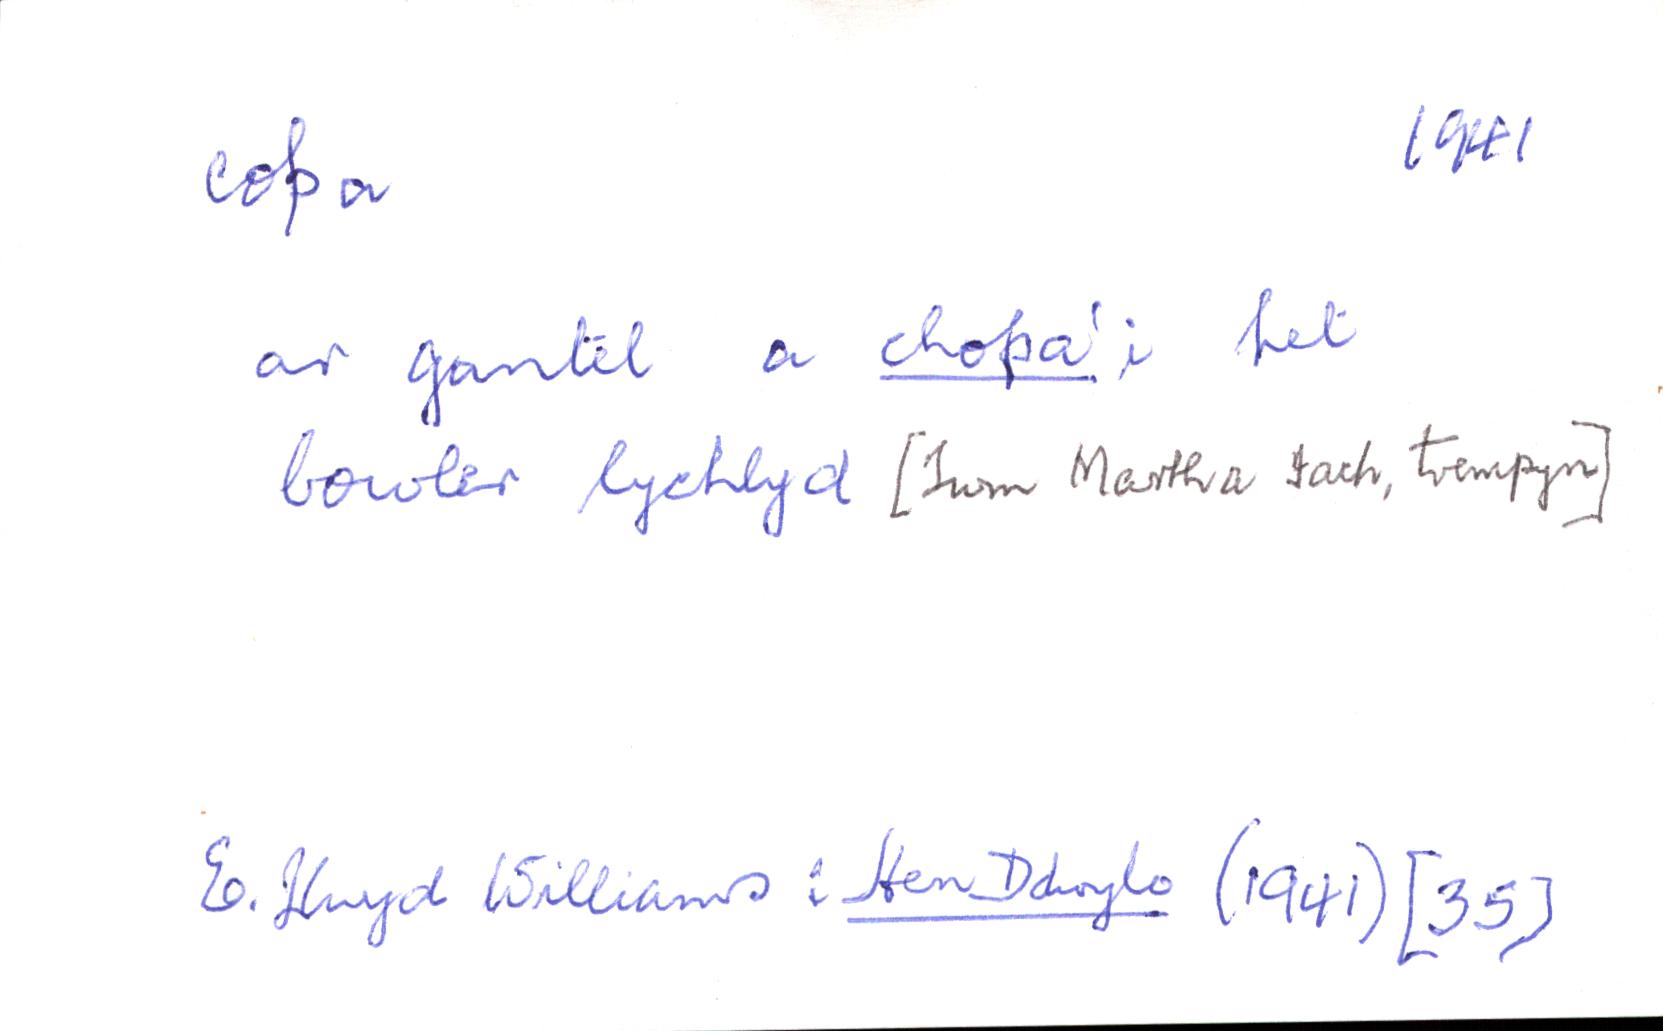 copa 1941
ar gantel a chopa'i het
bowler lychlyd [Twm Martha Fach, trempyn]
E. Llwyd Williams : Hen Ddwylo (1941) [35]